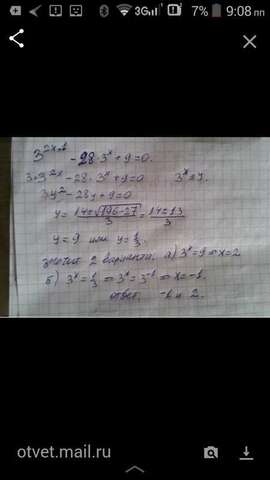 3G 7% 9:08 пп
3^(2x+1) - 28·3^x + 9 = 0.
3·3^(2x) - 28·3^x + 9 = 0 3^x = y.
3y² - 28y + 9 = 0
y = (14±√(196-27))/3 = (14±13)/3
y = 9 или y = 1/3.
значит 2 варианта: а) 3^x = 9 ⇒ x = 2
б) 3^x = 1/3 ⇒ 3^x = 3^(-1) ⇒ x = -1.
ответ: -1 и 2.
otvet.mail.ru